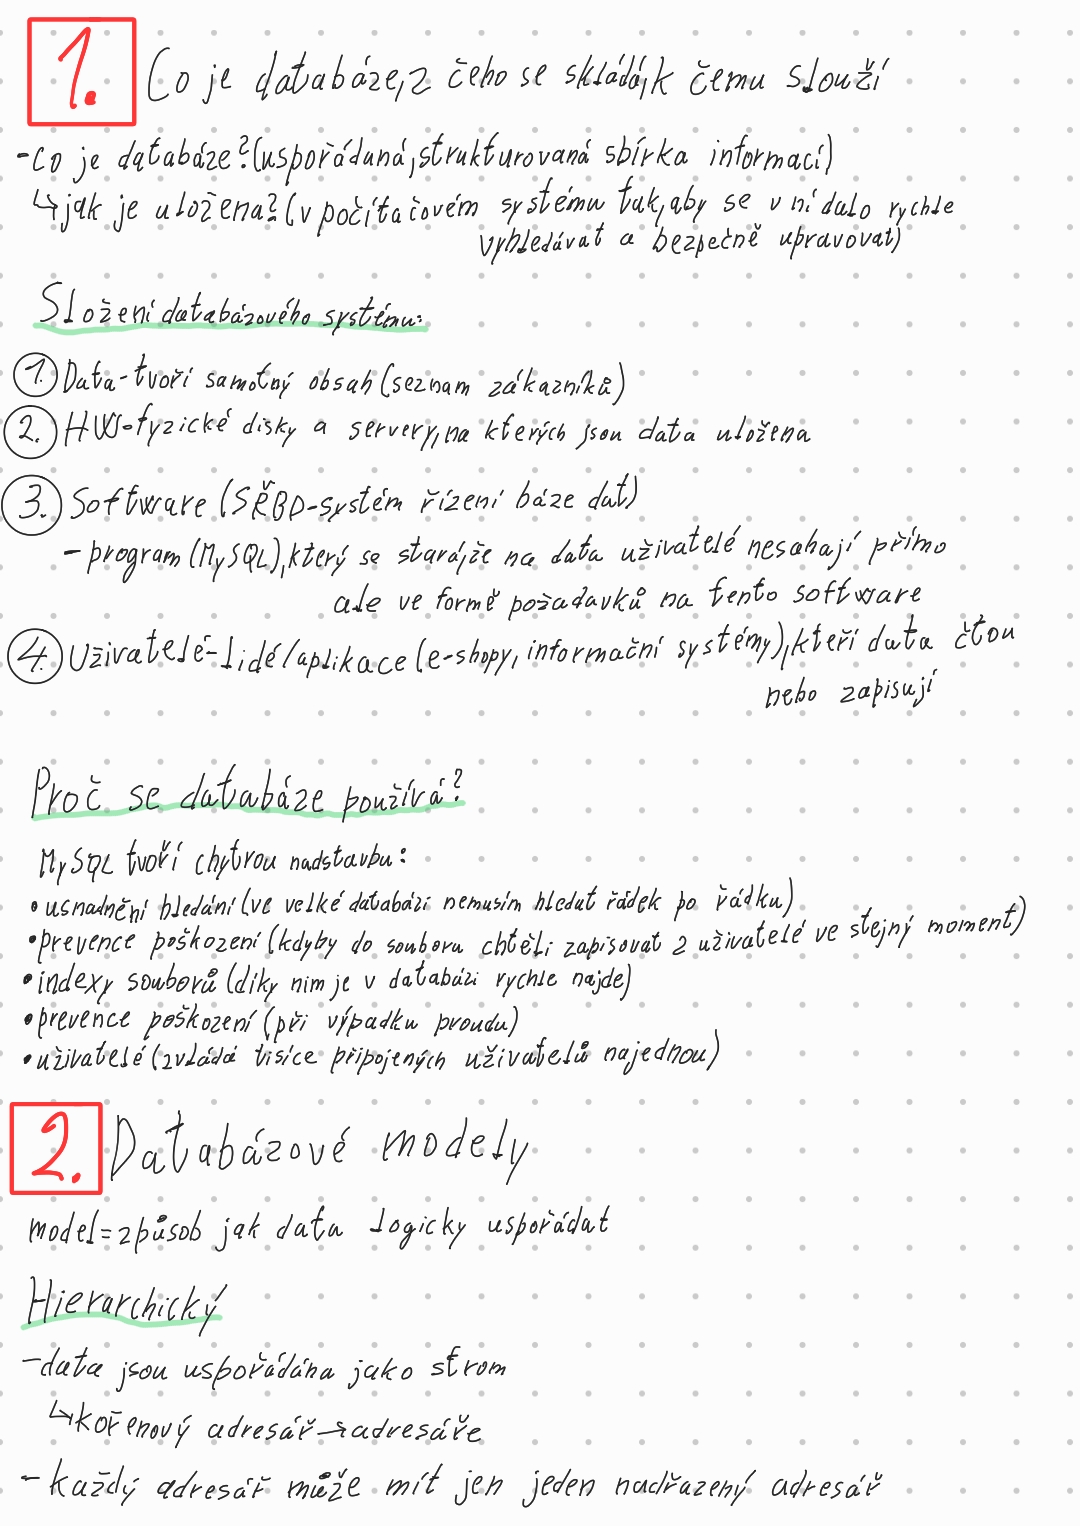 1. Co je databáze, z čeho se skládá, k čemu slouží
-Co je databáze? (uspořádaná, strukturovaná sbírka informací)
↳jak je uložena? (v počítačovém systému tak, aby se v ní dalo rychle
vyhledávat a bezpečně upravovat)
Složení databázového systému:
1. Data-tvoří samotný obsah (seznam zákazníků)
2. HW-fyzické disky a servery, na kterých jsou data uložena
3. Software (SŘBD-systém řízení báze dat)
- program (MySQL), který se stará, že na data uživatelé nesahají přímo
ale ve formě požadavků na tento software
4. Uživatelé-lidé/aplikace (e-shopy, informační systémy), kteří data čtou
nebo zapisují
Proč se databáze používá?
MySQL tvoří chytrou nadstavbu:
• usnadnění hledání (ve velké databázi nemusím hledat řádek po řádku)
• prevence poškození (kdyby do souboru chtěli zapisovat 2 uživatelé ve stejný moment)
• indexy souborů (díky nim je v databázi rychle najde)
• prevence poškození (při výpadku proudu)
• uživatelé (zvládá tisíce připojených uživatelů najednou)
2. Databázové modely
model=způsob jak data logicky uspořádat
Hierarchický
-data jsou uspořádána jako strom
↳kořenový adresář→adresáře
- každý adresář může mít jen jeden nadřazený adresář